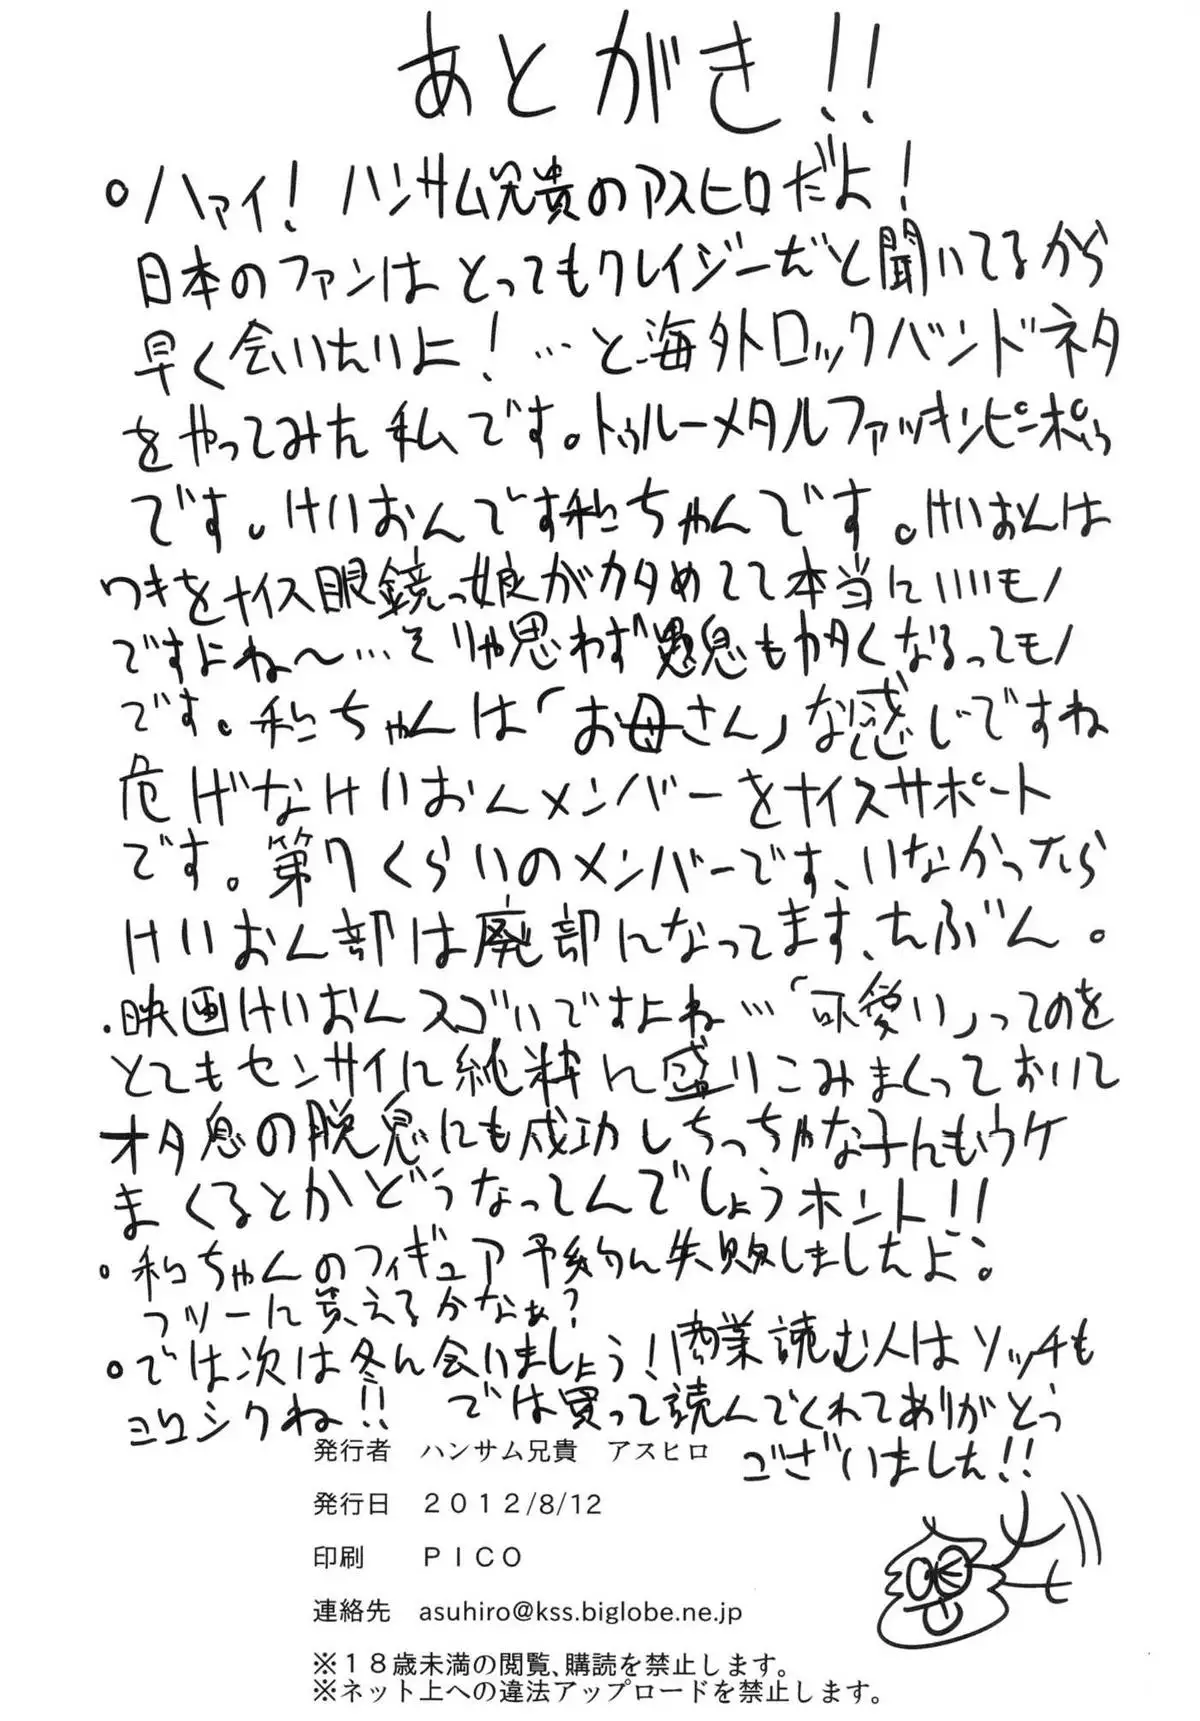 あとがき!!
。ハァイ!ハンサム兄貴のアスヒロだよ!
日本のファンはとってもクレイジーだと聞いてるから
早く会いたいよ!…と海外ロックバンドネタ
をやってみた私です。トゥルーメタルファッキン
です。けいおんです和ちゃんです。けいおんは
ワキをナイス眼鏡っ娘がカタめてて本当にいいモノ
ですよね〜…そりゃ思わず愚息もカタくなるってモノ
です。和ちゃんは「お母さん」な感じですね
危げなけいおんメンバーをナイスサポート
です。第7くらいのメンバーです、いなかったら
けいおん部は廃部になってます、たぶん。
・映画けいおんスゴいですよね…「可愛い」ってのを
とてもセンサイに純粋に盛りこみまくっておいて
オタ息の脱息にも成功しちっちゃな子にもウケ
まくるとかどうなってんでしょうホント!!
。和ちゃんのフィギュア予約に失敗しましたよ。
フツーに買えるかなぁ?
。では次は冬に会いましょう!商業読む人はソッチも
ヨロシクね!! では買って読んでくれてありがとう
ございました!!
発行者 ハンサム兄貴 アスヒロ
発行日 2012/8/12
印刷 PICO
連絡先 asuhiro@kss.biglobe.ne.jp
※18歳未満の閲覧、購読を禁止します。
※ネット上への違法アップロードを禁止します。